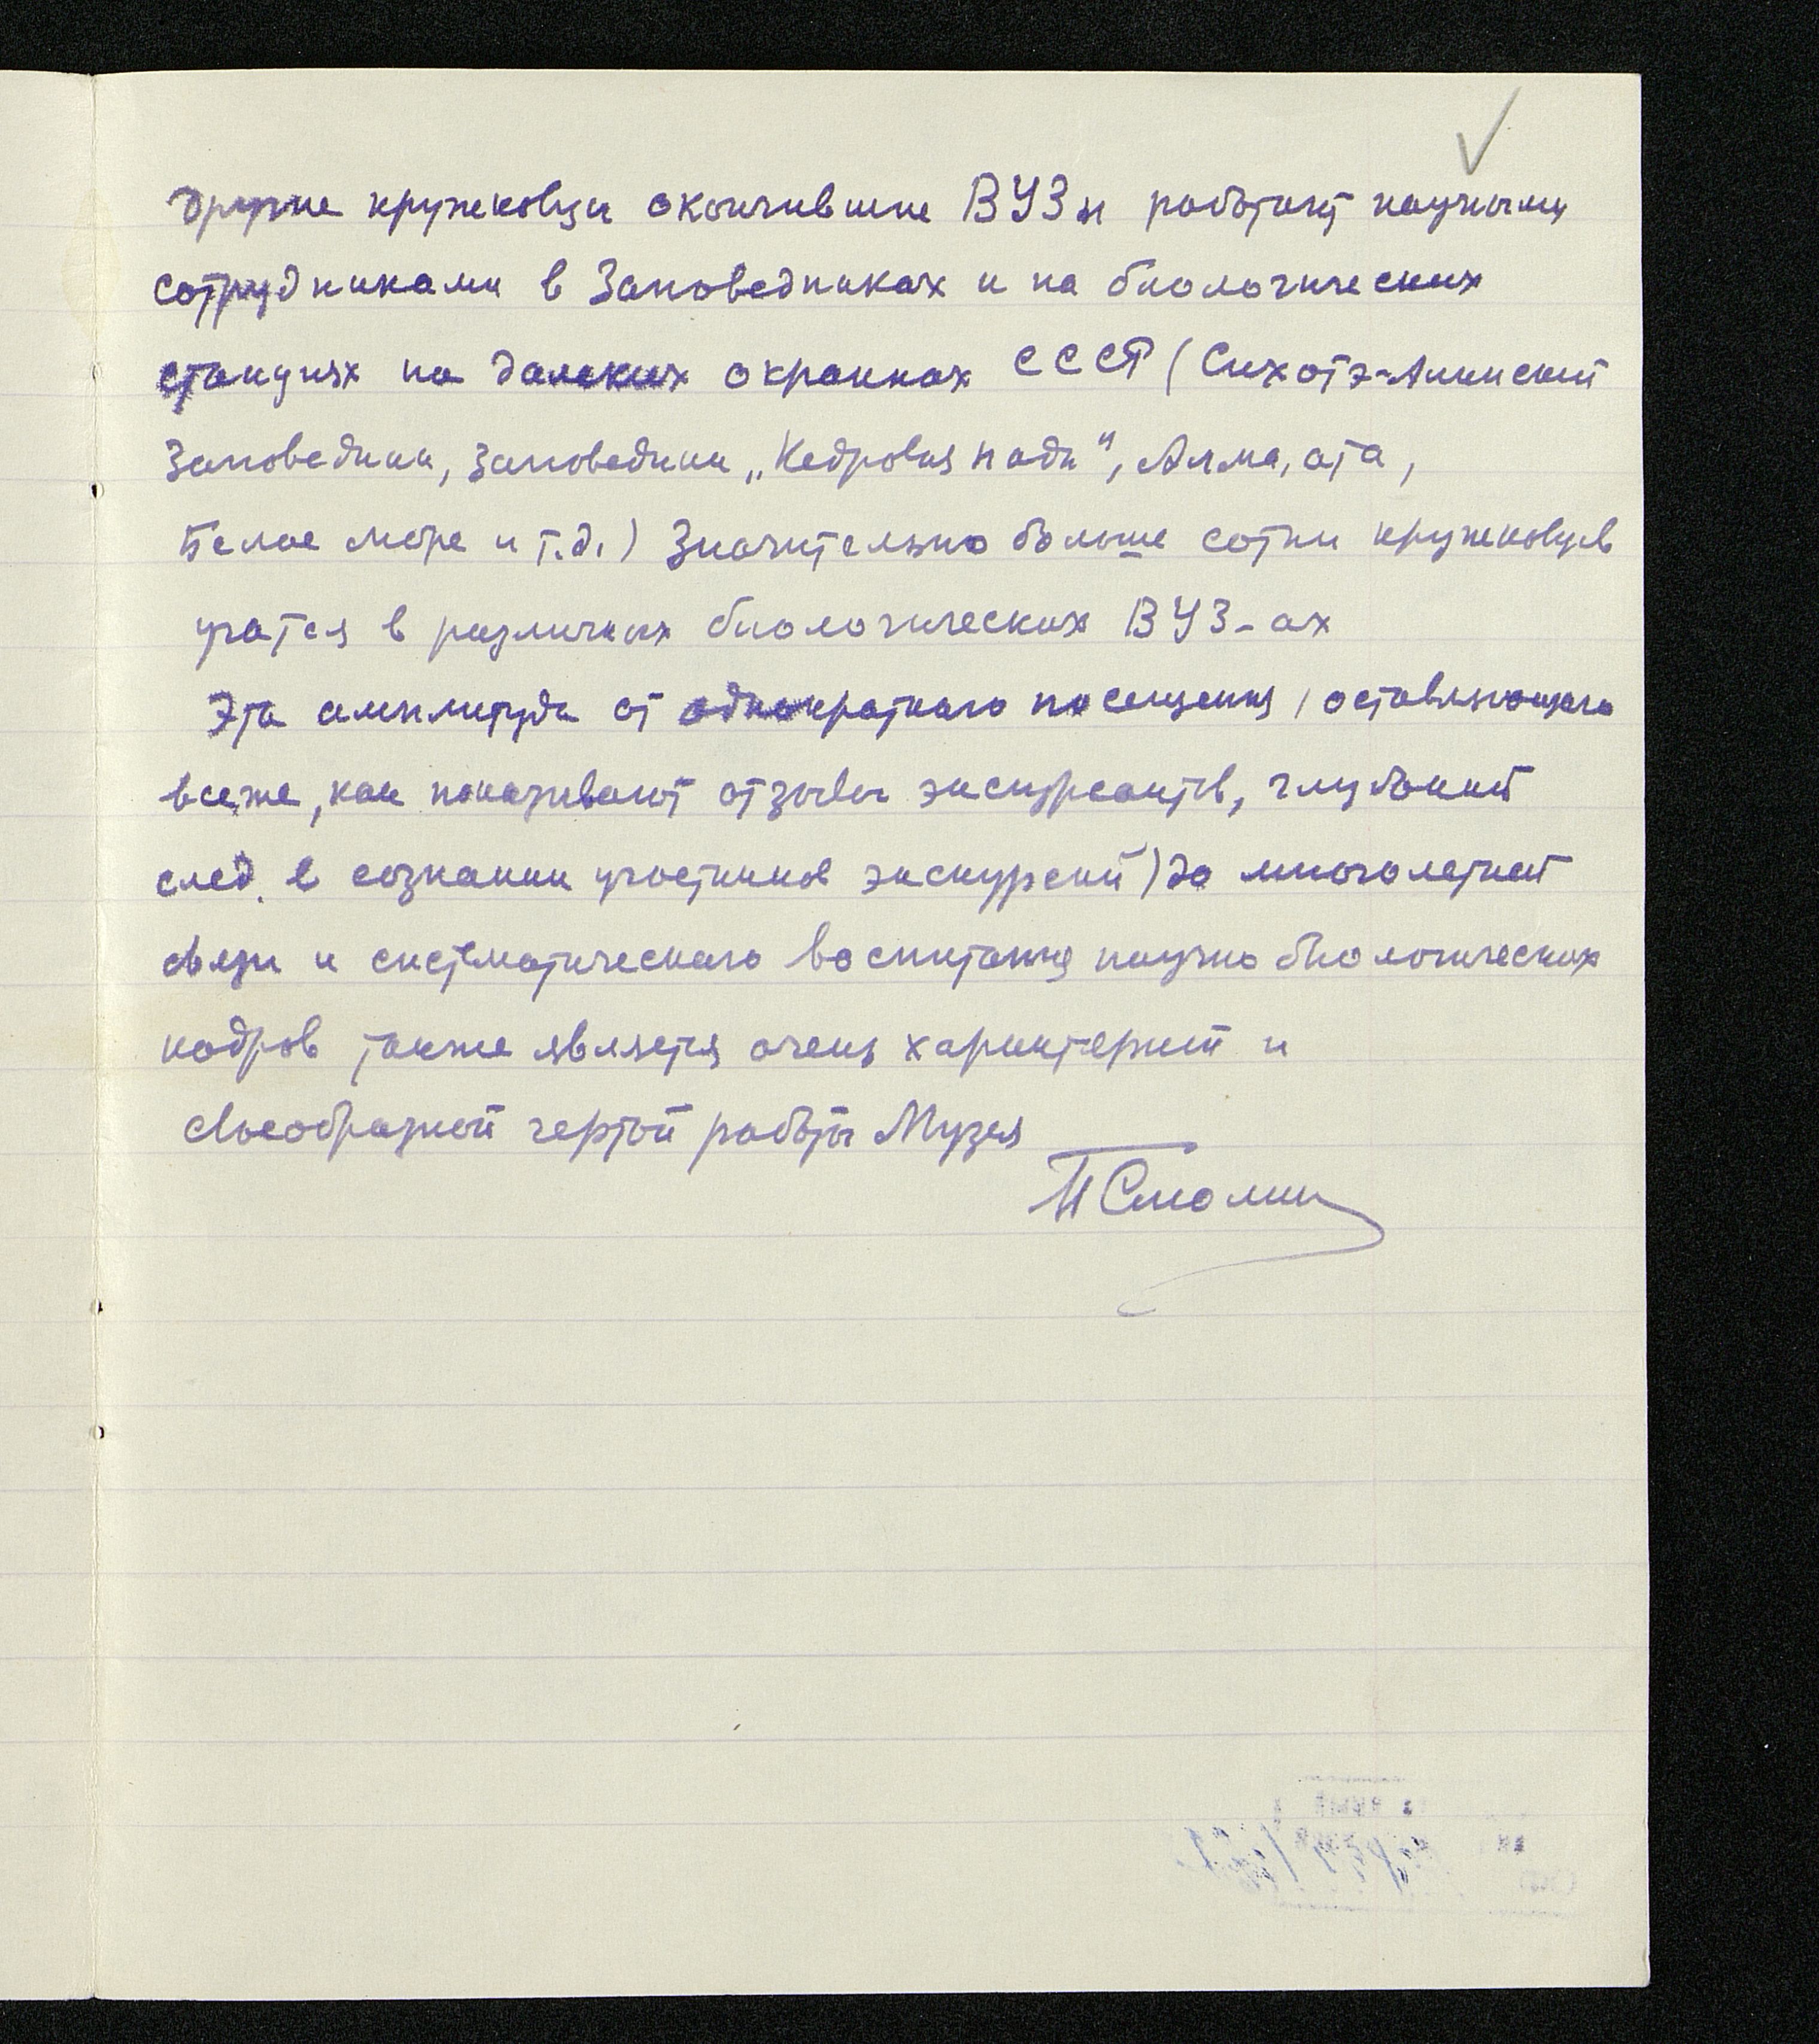 Другие кружковцы окончившие ВУЗы работают научными
сотрудниками в Заповедниках и на биологических
станциях на далеких окраинах СССР (Сихотэ-Алинский
Заповедник, заповедник „Кедровая падь", Алма, ата,
Белое море и т.д.) Значительно больше сотни кружковцев
учатся в различных биологических ВУЗ-ах
Эта амплитуда от однократного посещения (оставляющего
все же, как показывают отзывы экскурсантов, глубокий
след в сознании участников экскурсий) до многолетней
связи и систематического воспитания научно биологических
кадров также является очень характерной и
своеобразной чертой работы Музея
П Смолин